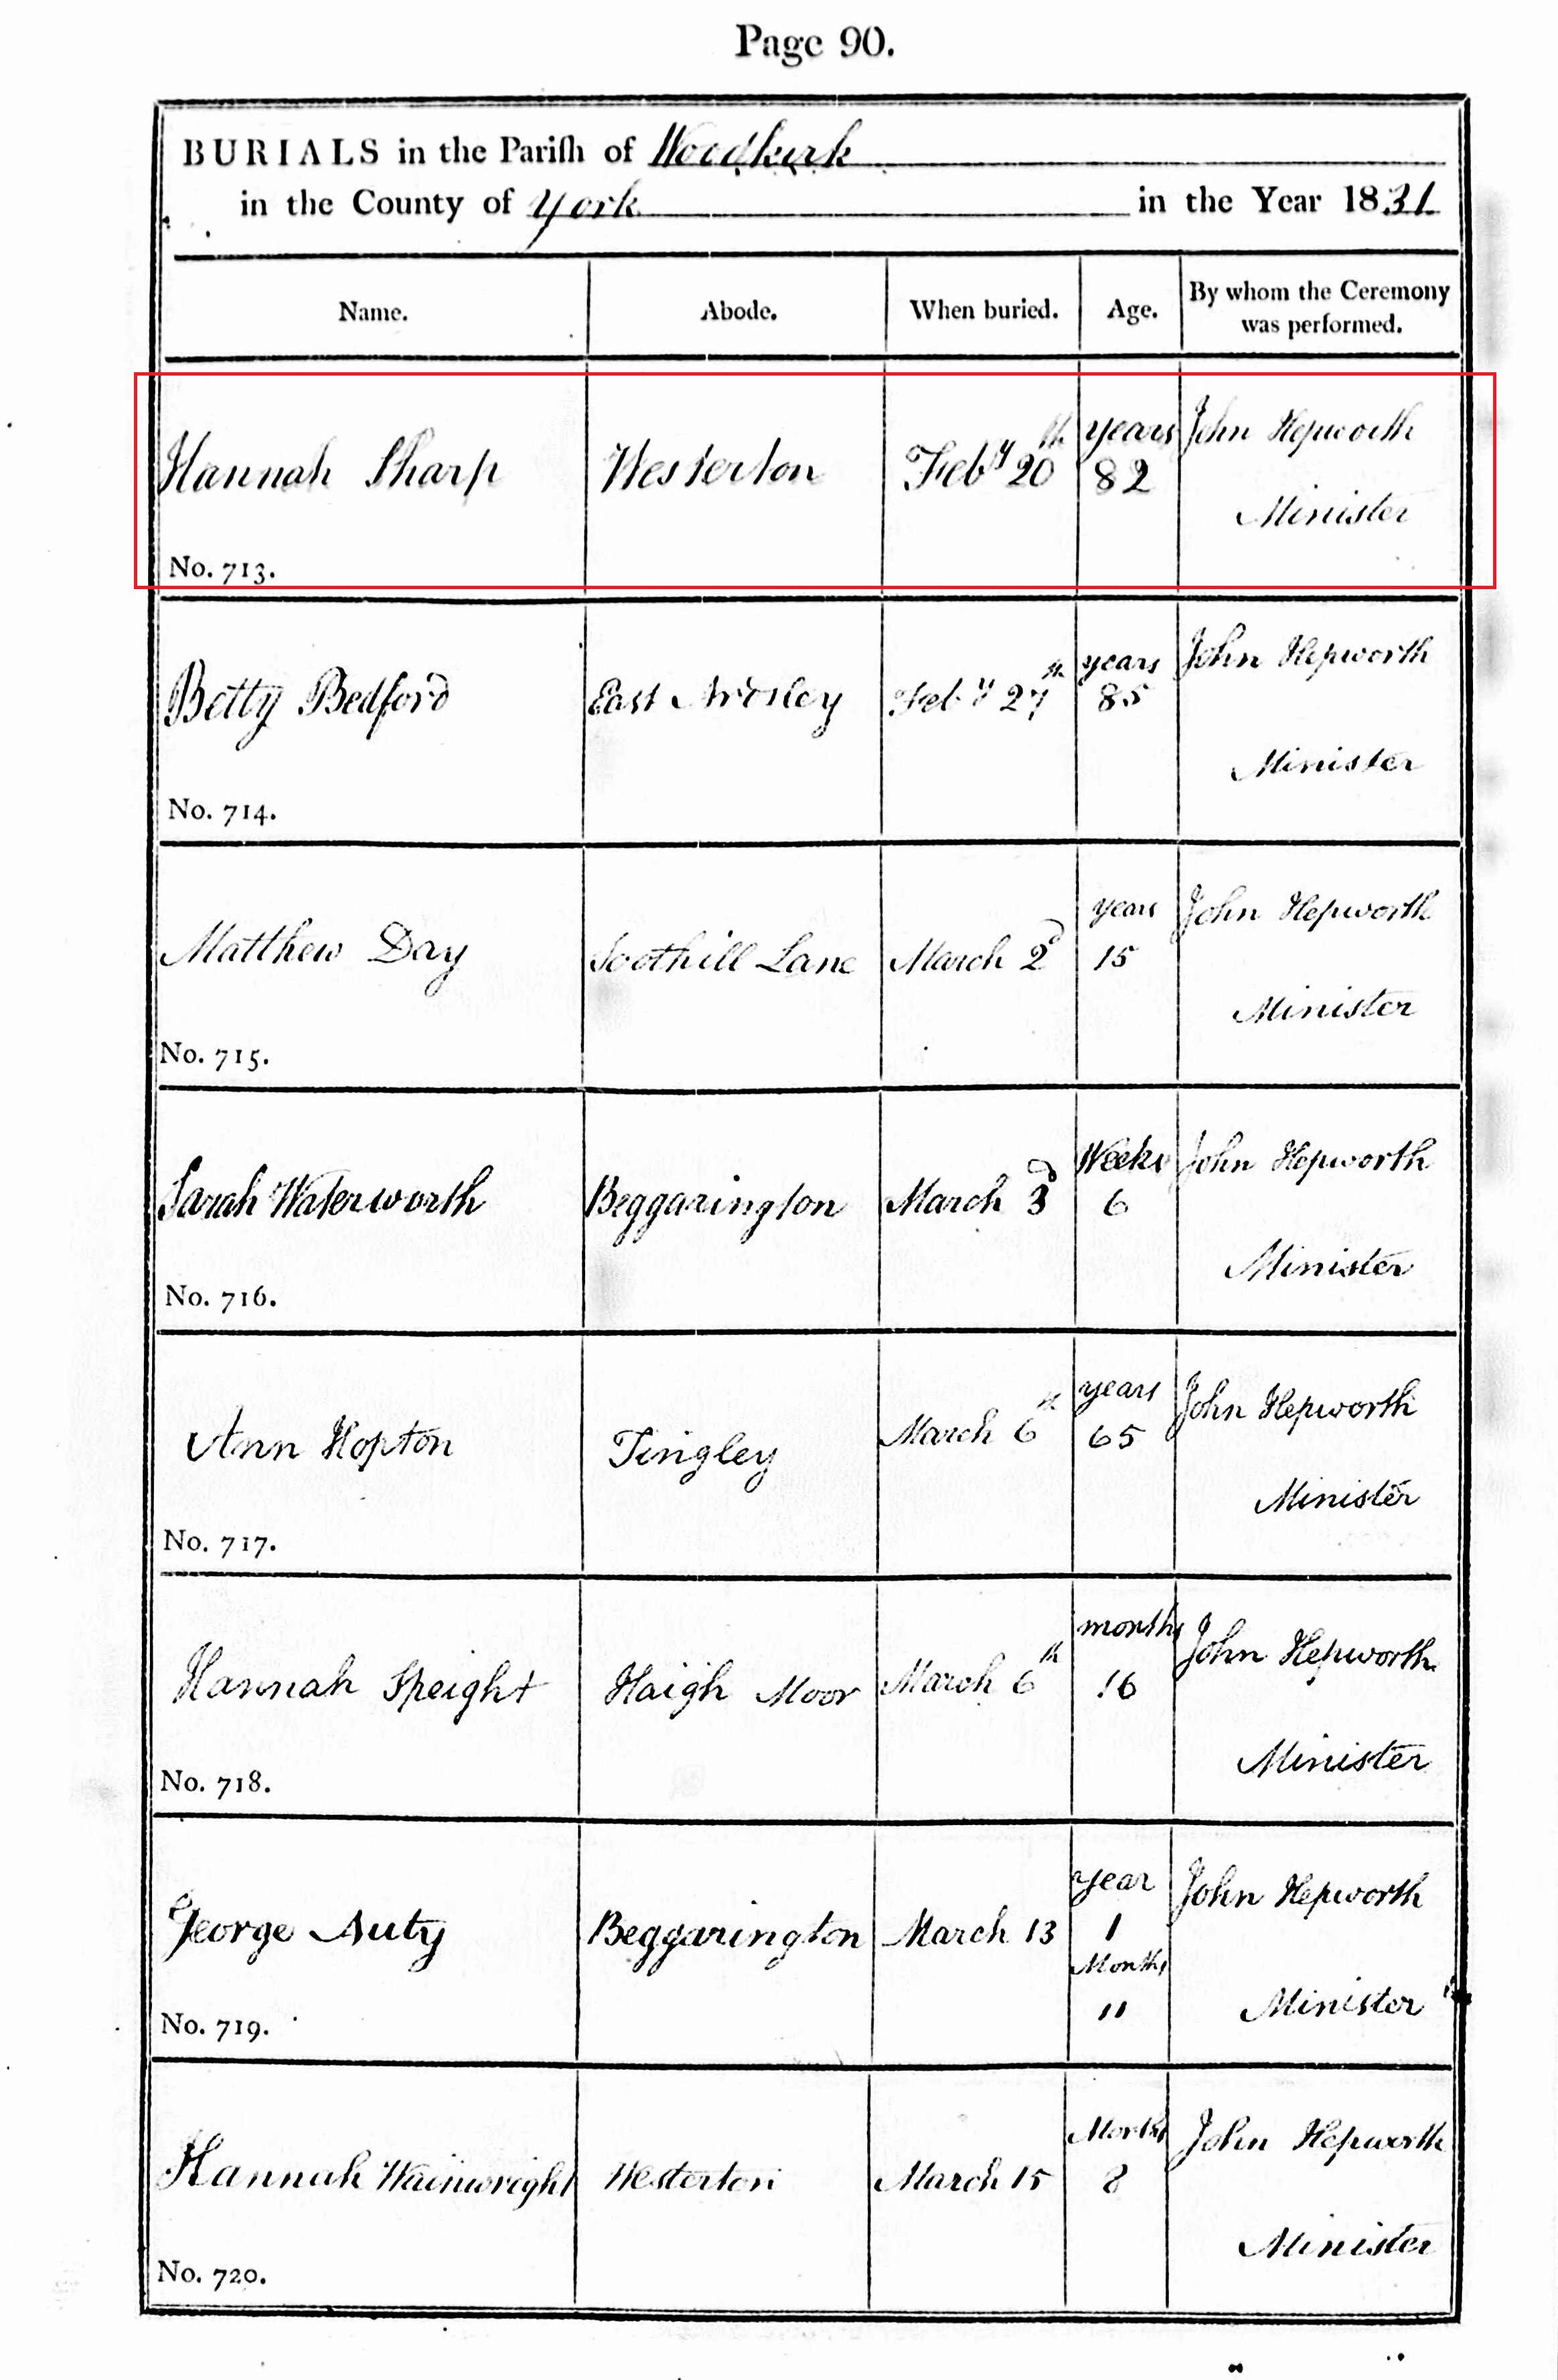 Page 90.
BURIALS in the Pariſh of Woodkirk
in the County of York in the Year 1831
Name. Abode. When buried. Age. By whom the Ceremony was performed.
Hannah Sharp Westerton Feby 20th years 82 John Hepworth Minister
No. 713.
Betty Bedford East Ardsley Feby 27th years 85 John Hepworth Minister
No. 714.
Matthew Day Soothill Lane March 2d years 15 John Hepworth Minister
No. 715.
Sarah Waterworth Beggarington March 3d Weeks 6 John Hepworth Minister
No. 716.
Ann Hopton Tingley March 6th years 65 John Hepworth Minister
No. 717.
Hannah Speight Haigh Moor March 6th months 16 John Hepworth Minister
No. 718.
George Auty Beggarington March 13 year 1 Months 11 John Hepworth Minister
No. 719.
Hannah Wainwright Westerton March 15 Months 8 John Hepworth Minister
No. 720.